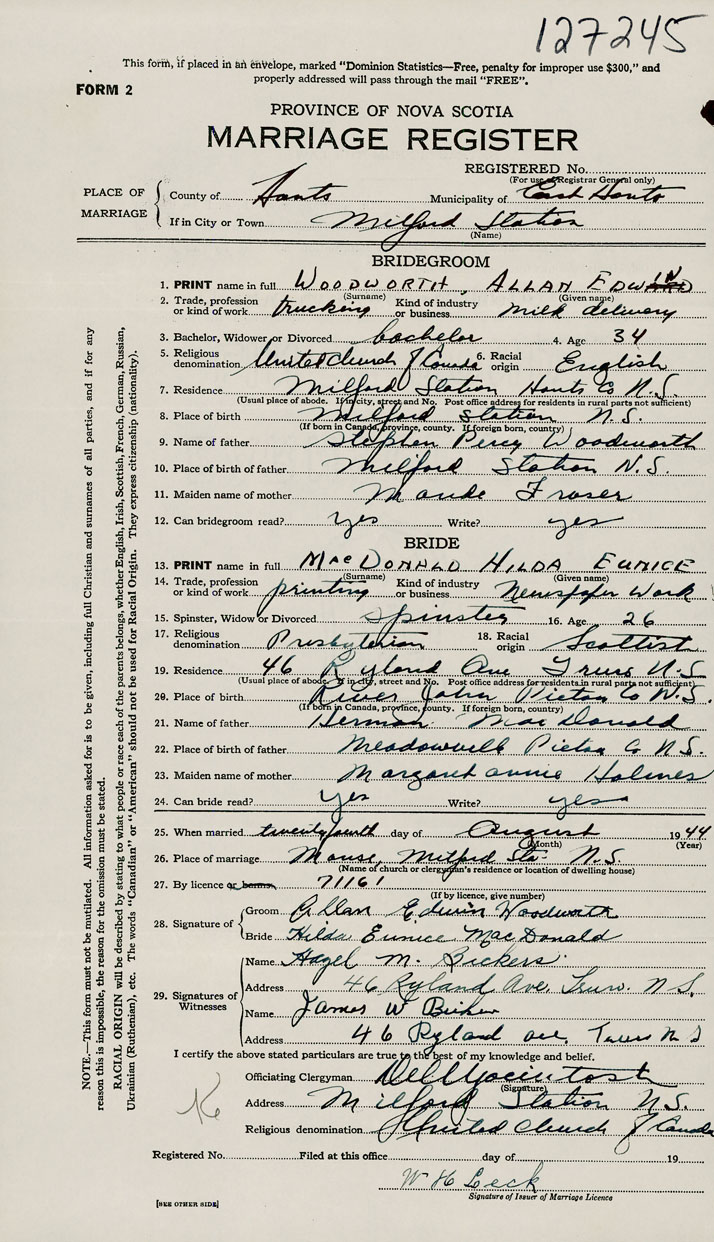 127245
This form, if placed in an envelope, marked "Dominion Statistics—Free, penalty for improper use $300," and
properly addressed will pass through the mail "FREE".
FORM 2
PROVINCE OF NOVA SCOTIA
MARRIAGE REGISTER
REGISTERED No.
(For use of Registrar General only)
PLACE OF MARRIAGE
County of Hants Municipality of East Hants
If in City or Town Milford Station
(Name)
BRIDEGROOM
1. PRINT name in full WOODWORTH, ALLAN EDWIN
(Surname) (Given name)
2. Trade, profession or kind of work trucking Kind of industry or business milk delivery
3. Bachelor, Widower or Divorced bachelor 4. Age 34
5. Religious denomination United Church of Canada 6. Racial origin English
7. Residence Milford Station Hants Co N.S.
(Usual place of abode. If in city, street and No. Post office address for residents in rural parts not sufficient)
8. Place of birth Milford Station N.S.
(If born in Canada, province, county. If foreign born, country)
9. Name of father Stephen Percy Woodworth
10. Place of birth of father Milford Station N.S.
11. Maiden name of mother Maude Fraser
12. Can bridegroom read? yes Write? yes
BRIDE
13. PRINT name in full MacDONALD HILDA EUNICE
(Surname) (Given name)
14. Trade, profession or kind of work printing Kind of industry or business Newspaper Work
15. Spinster, Widow or Divorced Spinster 16. Age 26
17. Religious denomination Presbyterian 18. Racial origin Scottish
19. Residence 46 Ryland Ave Truro N.S.
(Usual place of abode. If in city, street and No. Post office address for residents in rural parts not sufficient)
20. Place of birth River John Pictou Co N.S.
(If born in Canada, province, county. If foreign born, country)
21. Name of father Herman MacDonald
22. Place of birth of father Meadowvill Pictou Co N.S.
23. Maiden name of mother Margaret Annie Holmes
24. Can bride read? yes Write? yes
25. When married twenty fourth day of August 1944
(Month) (Year)
26. Place of marriage Manse, Milford Sta. N.S.
(Name of church or clergyman's residence or location of dwelling house)
27. By licence or banns 71161
(If by licence, give number)
28. Signature of Groom Allan Edwin Woodworth
Bride Hilda Eunice MacDonald
29. Signatures of Witnesses
Name Hazel M. Bickers
Address 46 Ryland Ave. Truro N.S.
Name James W
Address 46 Ryland ave, Truro N S
I certify the above stated particulars are true to the best of my knowledge and belief.
Officiating Clergyman
(Signature)
Address Milford Station N.S.
Religious denomination United Church of Canada
Registered No. Filed at this office day of 19
W H Leck
Signature of Issuer of Marriage Licence
[SEE OTHER SIDE]
NOTE.—This form must not be mutilated. All information asked for is to be given, including full Christian and surnames of all parties, and if for any
reason this is impossible, the reason for the omission must be stated.
RACIAL ORIGIN will be described by stating to what people or race each of the parents belongs, whether English, Irish, Scottish, French, German, Russian,
Ukrainian (Ruthenian), etc. The words "Canadian" or "American" should not be used for Racial Origin. They express citizenship (nationality).